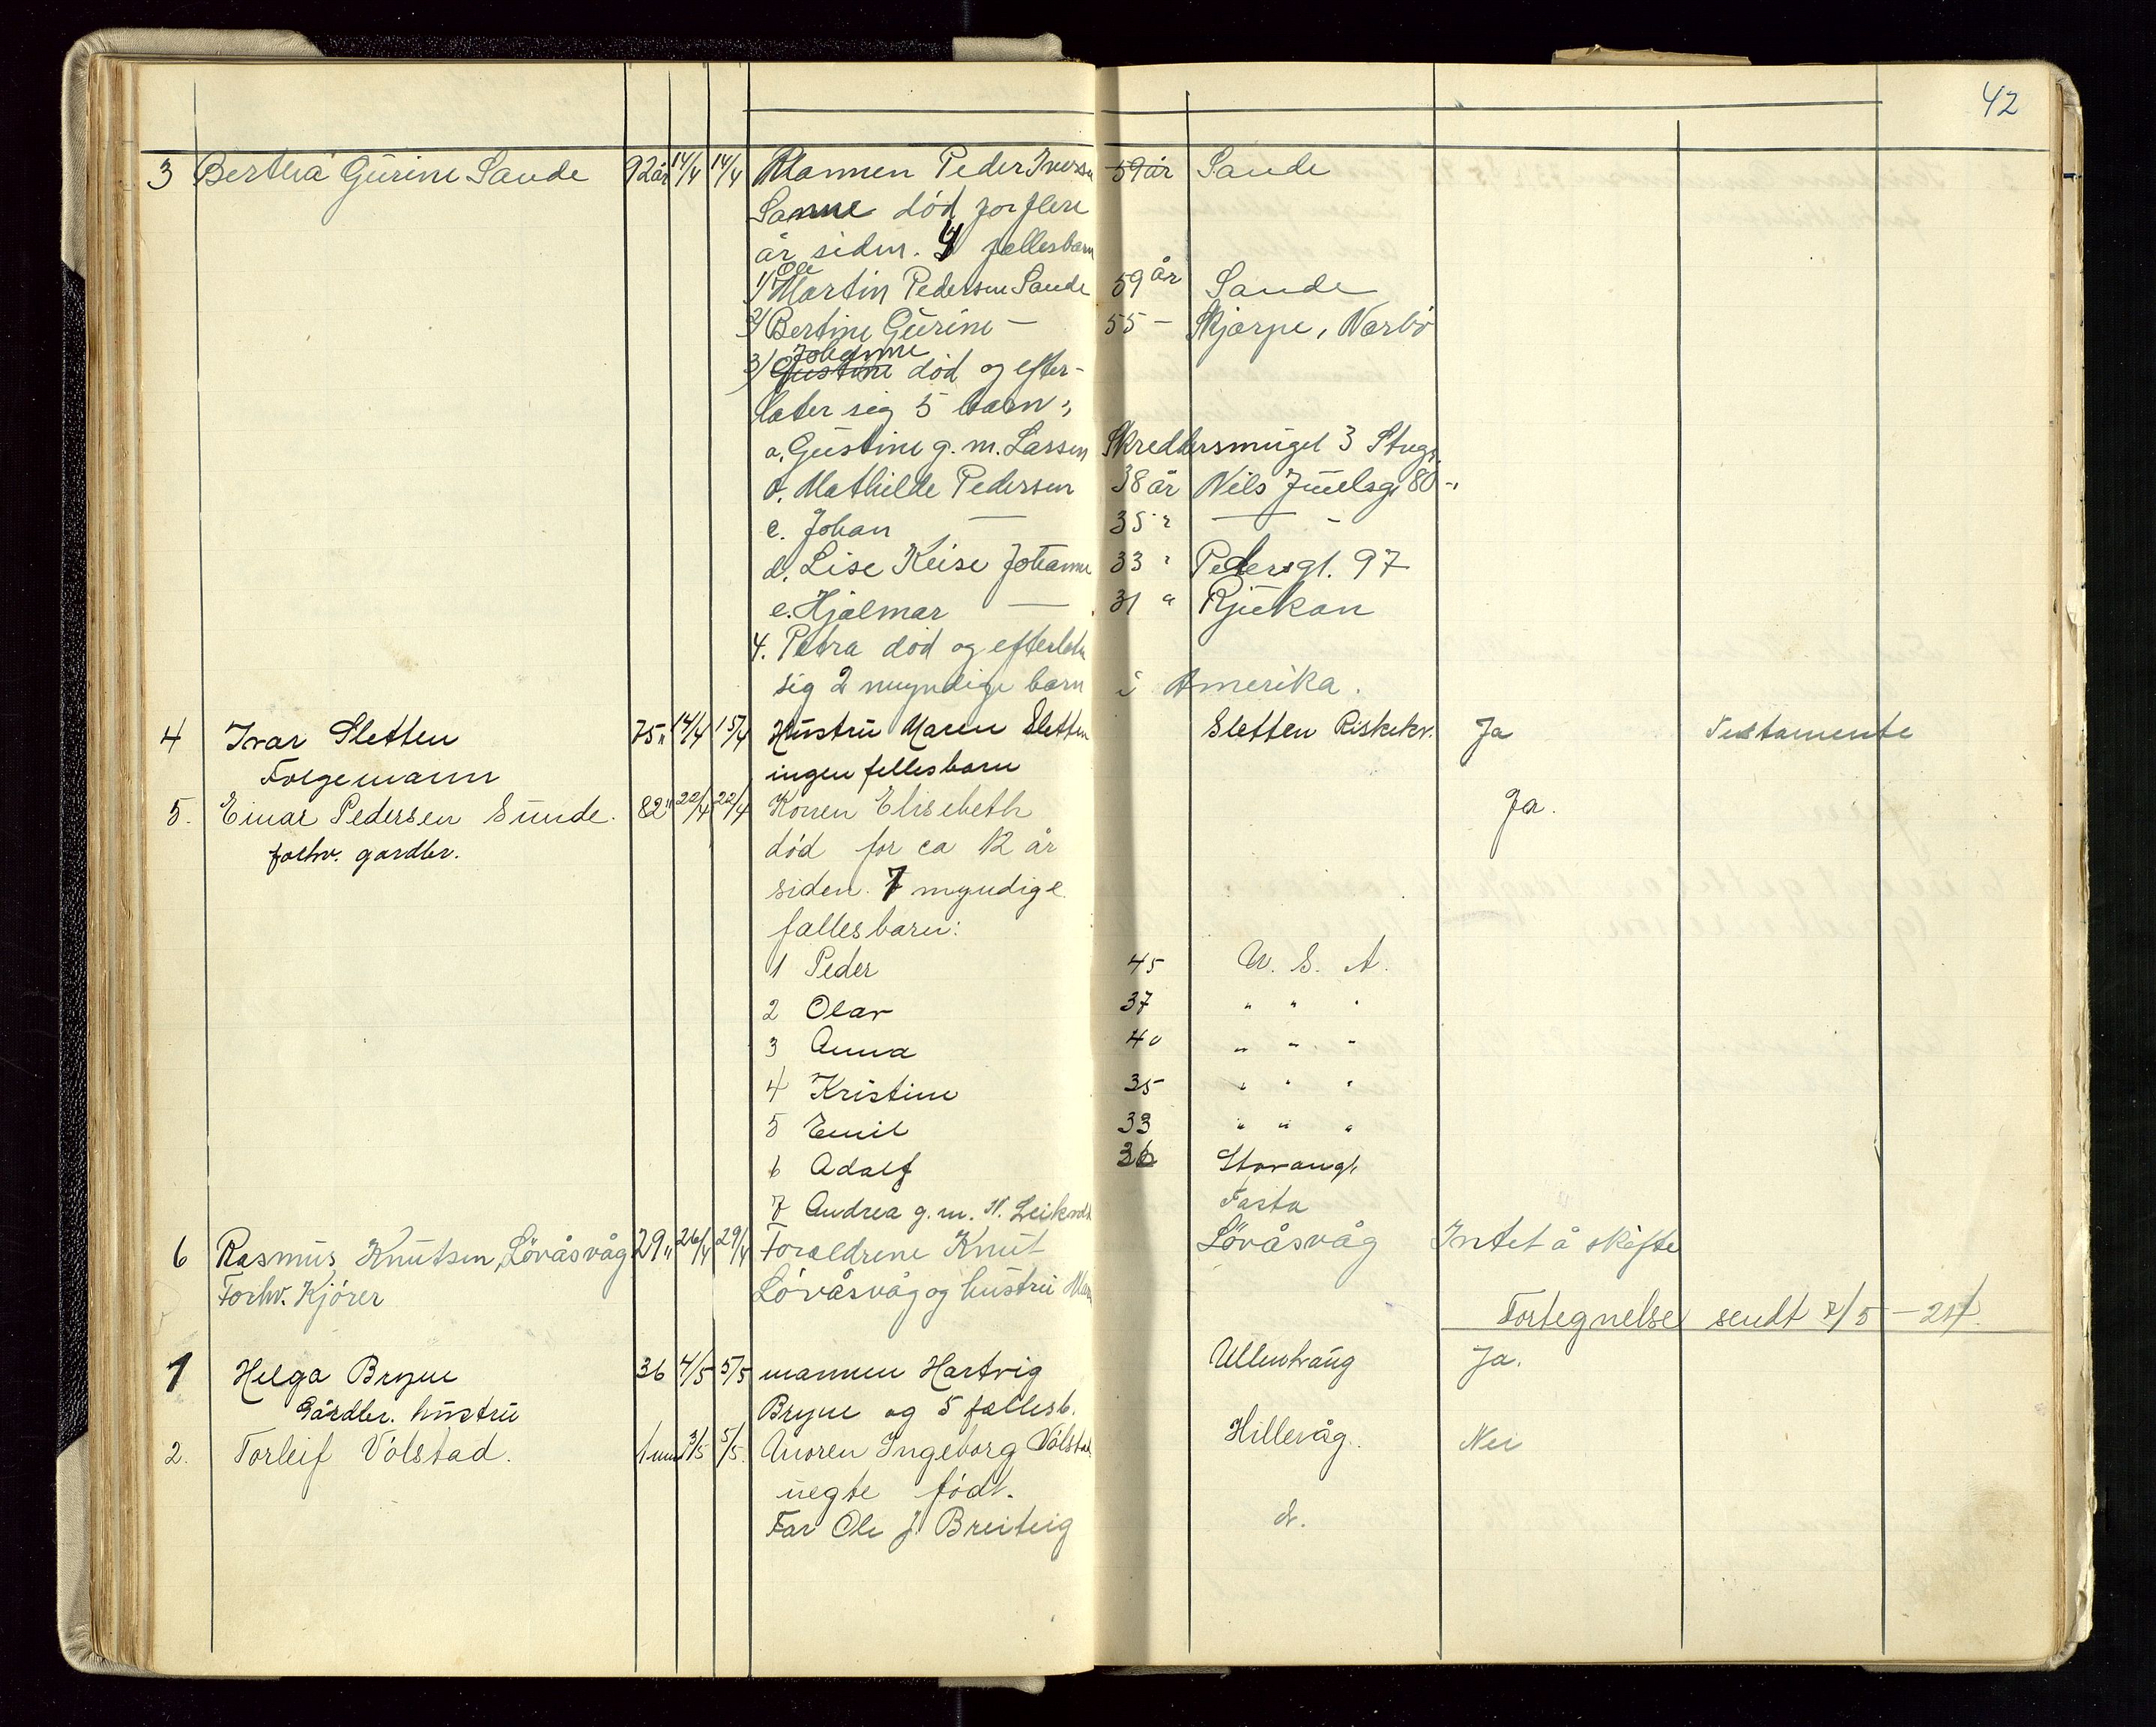 42
3 Bertha Gurine Sande 92 år 14/4 14/4 Mannen Peder Iversen 59 år Sande
Sanne død for flere
år siden. 4 fellesbarn
1/ Ole Martin Pedersen Sande 59 år Sande
2/ Bertine Gurine — 55 — Skjærpe, Varbø
3/ Gustine Johanne død og efter-
later sig 5 barn:
a. Gustine g. m. Larsen Skreddersmuget 3 Stvgr.
b. Mathilde Pedersen 38 år Nils Juelsg 80 -"
c. Johan — 35 " — -
d. Lise Keise Johanne 33 " Pedersgt. 97
e. Hjalmar — 31 " Rjukan
4. Petra død og efterlater
sig 2 myndige barn i Amerika.
4 Ivar Sletten 75 " 14/4 15/4 Hustru Maren Sletten Sletten Riskekv. Ja Testamente
Folgemann ingen fellesbarn
5. Einar Pedersen Sunde. 82 " 22/4 22/4 Konen Elisebeth Ja.
forhv. gardbr. død for ca 12 år
siden. 7 myndige
fallesbarn:
1 Peder 45 U. S. A.
2 Olav 37 " " "
3 Anna 40 " " "
4 Kristine 35 " " "
5 Emil 33 " " "
6 Adolf 36 Stavangr.
7 Andrea g. m. N. Leikvoll Tasta
6 Rasmus Knutsen, Lövåsvåg 29 " 26/4 29/4 Foreldrene Knut Lövåsvåg Intet å skifte
Forhv. Kjörer Lövåsvåg og hustru
Fortegnelse sendt 2/5 - 27.
1 Helga Bryne 36 4/5 5/5 mannen Hartvig Ullenhaug Ja.
Gårdbr. hustru Bryne og 5 fallesb.
2. Torleif Volstad. 1 mnd 3/5 5/5. Moren Ingeborg Volstad Hillevåg. Nei
uegte födt.
Far Ole J. Breiteig d.